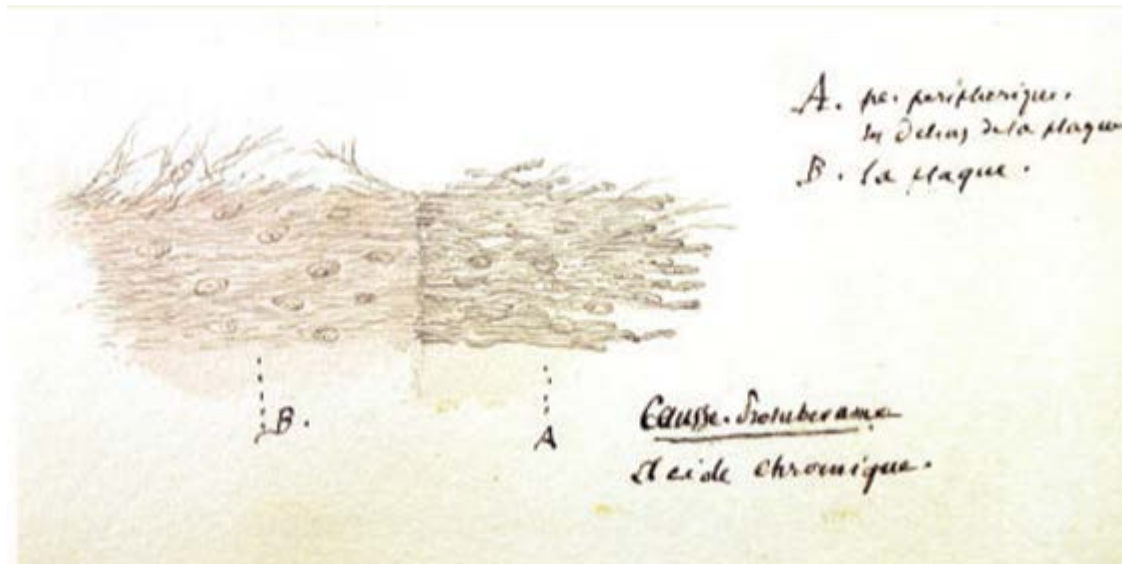 A. périphérique.
en dehors de la plaque
B. la plaque.
B.
A
Causse. Protuberance
Acide chromique.